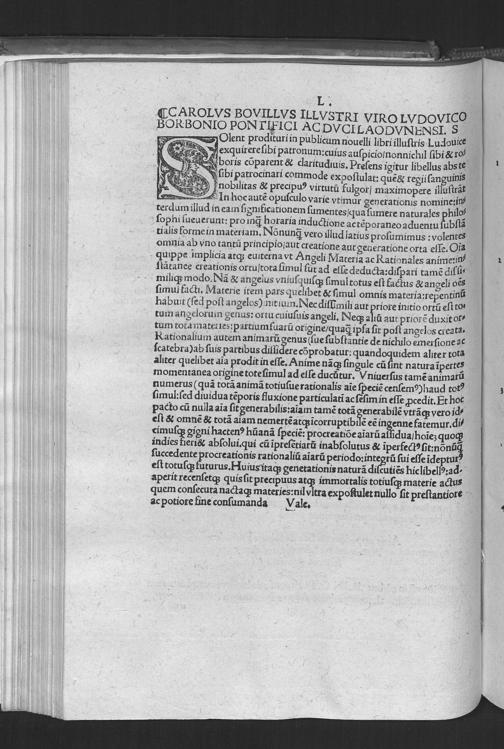 L.
¶CAROLVS BOVILLVS ILLVSTRI VIRO LVDOVICO
BORBONIO PONTIFICI AC DVCI LAODVNENSI. S
SOlent prodituri in publicum nouelli libri illustris Ludouice
exquirere sibi patronum: cuius auspicio nonnichil sibi & ro/
boris cōparent & claritudinis. Presens igitur libellus abs te
sibi patrocinari commode expostulat: quē & regii sanguinis
nobilitas & precipuꝰ virtutū fulgor maximopere illustrāt
In hoc autē opusculo varie vtimur generationis nomine: in/
terdum illud in eam significationem sumentes/qua sumere naturales philo/
sophi sueuerunt: pro inq̄ horaria inductione ac tēporaneo aduentu substā
tialis forme in materiam. Nōnunq̄ vero illud latius prosumimus: volentes
omnia ab vno tantū principio/aut creatione aut generatione orta esse. Oīa
quippe implicia atq; euiterna vt Angeli Materia ac Rationales anime: in/
stātanee creationis ortu/tota simul sūt ad esse deducta: dispari tamē dissi/
miliq; modo. Nā & angelus vniusquisq; simul totus est factus & angeli oēs
simul facti. Materie item pars quelibet & simul omnis materia: repentinū
habuit (sed post angelos) initium. Nec dissimili aut priore initio ortū est to/
tum angelorum genus: ortu cuiusuis angeli. Neq; aliū aut priorē duxit or/
tum tota materies: partium suarū origine/quaq̄ ipsa sit post angelos creata.
Rationalium autem animarū genus (sue substantie de nichilo emersione ac
scatebra) ab suis partibus dissidere cōprobatur: quandoquidem aliter tota
aliter quelibet aīa prodit in esse. Anime nāq; singule cū sint natura īpertes
momentanea origine tote simul ad esse ducūtur. Vniuersus tamē animarū
numerus (quā totā animā totiusue rationalis aīe speciē censemꝰ) haud totꝰ
simul: sed diuidua tēporis fluxione particulari ac sēsim in esse ꝓcedit. Et hoc
pacto cū nulla aīa sit generabilis: aīam tamē totā generabilē vtrāq; vero id/
est & omnē & totā aīam nemerētē atq; īcorruptibilē eē ingenne fatemur. di/
cimusq; gigni hactenꝰ hūanā speciē: procreatiōe aīarū assidua/hoīe; quoq;
indies fieri & absolui, qui cū ipse īteriarū inabsolutus & īperfectꝰ sit: nōnūq̄
succedente procreationis rationaliū aīarū periodo: integrū sui esse īdepturꝰ
est totusq; futurus. Huius itaq; generationis naturā discutiēs hic libellꝰ: ad/
aperit recensetq; quis sit precipuus atq; immortalis totiusq; materie actus
quem consecuta nactaq; materies: nil vltra expostulet nullo sit prestantiore
ac potiore fine consumanda Vale.